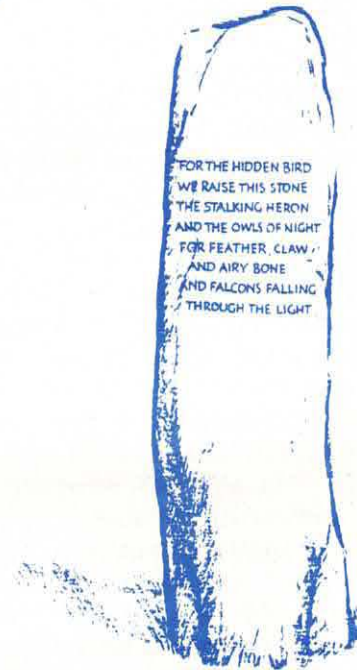 FOR THE HIDDEN BIRD
WE RAISE THIS STONE
THE STALKING HERON
AND THE OWLS OF NIGHT
FOR FEATHER, CLAW
AND AIRY BONE
AND FALCONS FALLING
THROUGH THE LIGHT